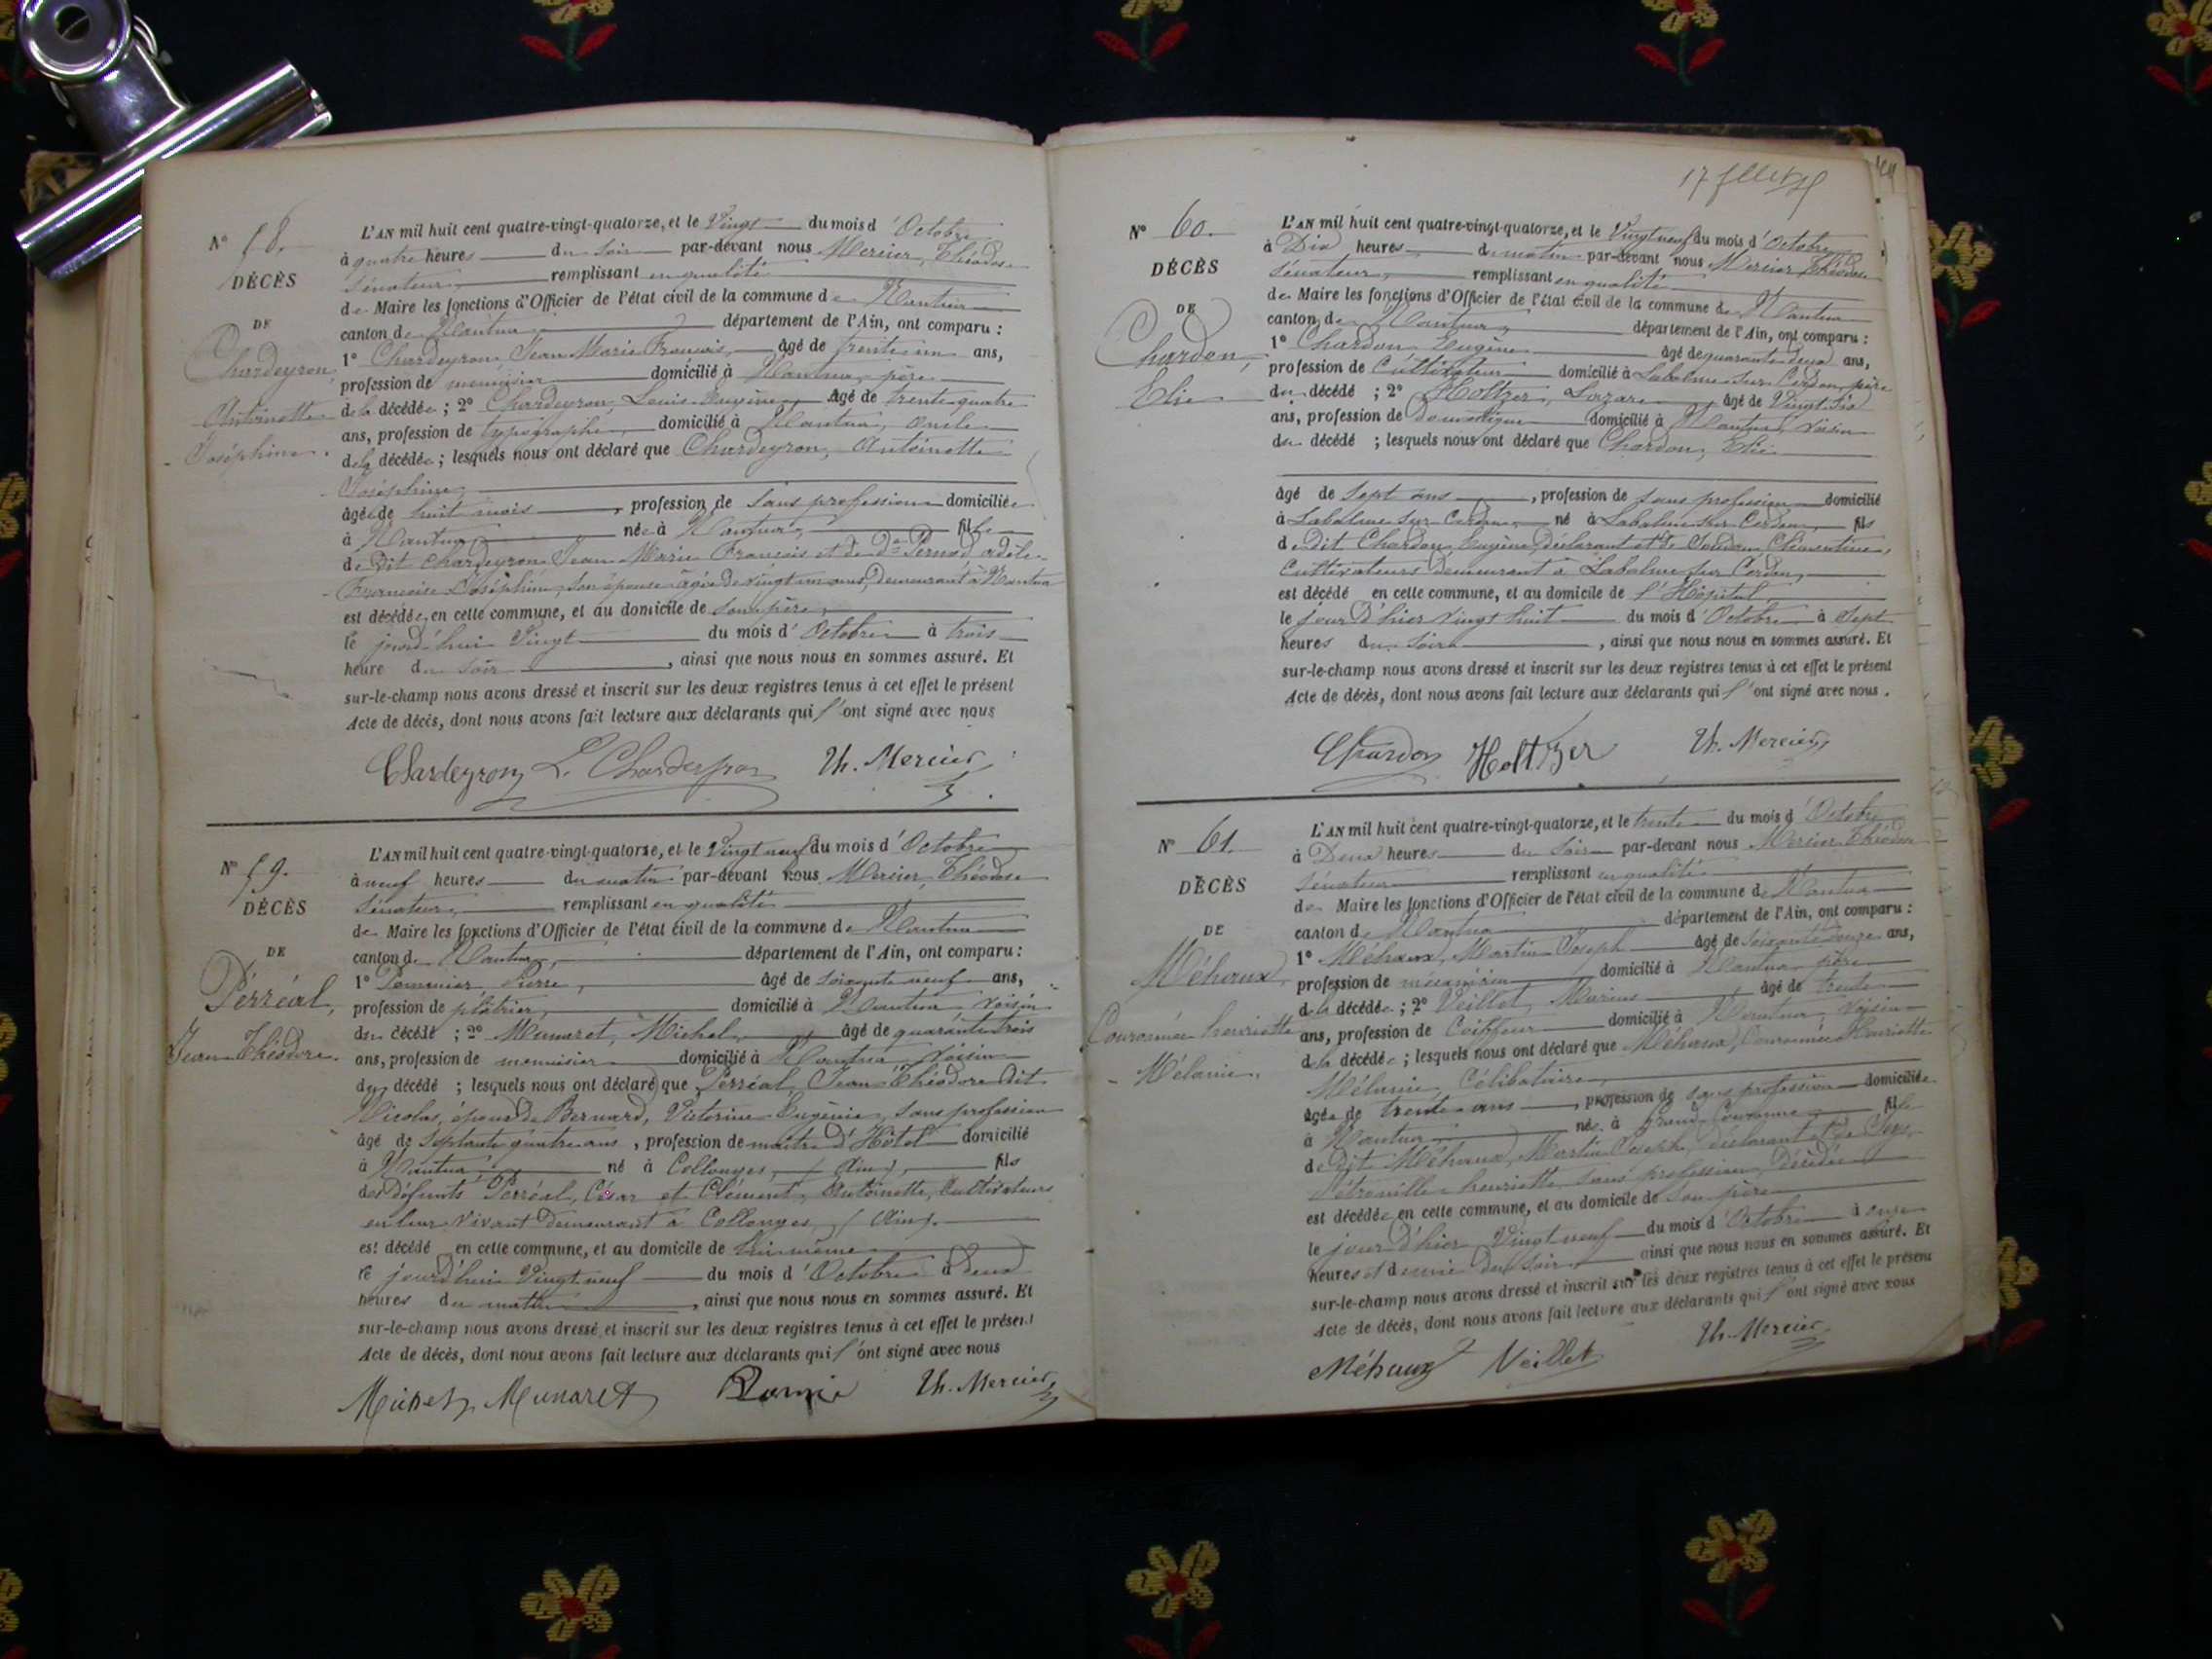 N° 58.
DÉCÈS
DE
Chardeyron
Antoinette
Joséphine.
L'AN mil huit cent quatre-vingt-quatorze, et le Vingt du mois d'Octobre
à quatre heures du soir par-devant nous Mercier, Théodose
Sénateur, remplissant en qualité
de Maire les fonctions d'Officier de l'état civil de la commune de Nantua
canton de Nantua département de l'Ain, ont comparu :
1° Chardeyron Jean Marie François, âgé de trente un ans,
profession de menuisier domicilié à Nantua, père
de la décédée ; 2° Chardeyron, Louis Eugène, âgé de trente quatre
ans, profession de typographe, domicilié à Nantua, oncle
de la décédée ; lesquels nous ont déclaré que Chardeyron, Antoinette
Joséphine,
âgée de huit mois, profession de sans profession domiciliée
à Nantua née à Nantua, fille
de dit Chardeyron Jean Marie François et de De Pernod adèle
Françoise Joséphine, son épouse âgée de vingt un ans, demeurant à Nantua
est décédée, en cette commune, et au domicile de son père,
le jourd'hui Vingt du mois d'Octobre à trois
heure du soir, ainsi que nous nous en sommes assuré. Et
sur-le-champ nous avons dressé et inscrit sur les deux registres tenus à cet effet le présent
Acte de décès, dont nous avons fait lecture aux déclarants qui l'ont signé avec nous
Chardeyron L. Chardeyron Th. Mercier
N° 59.
DÉCÈS
DE
Perréal,
Jean Théodore.
L'AN mil huit cent quatre-vingt-quatorze, et le Vingt neuf du mois d'Octobre
à neuf heures du matin par-devant nous Mercier, Théodose
Sénateur, remplissant en qualité
de Maire les fonctions d'Officier de l'état civil de la commune de Nantua
canton de Nantua, département de l'Ain, ont comparu :
1° Pierre, âgé de soixante neuf ans,
profession de plâtrier, domicilié à Nantua voisin
du décédé ; 2° Munaret, Michel, âgé de quarante trois
ans, profession de menuisier domicilié à Nantua voisin
du décédé ; lesquels nous ont déclaré que Perréal, Jean Théodore dit
Nicolas, époux de Bernard, Victorine Eugénie, sans profession
âgé de septante quatre ans, profession de maître d'Hôtel domicilié
à Nantua né à Collonges, (Ain), fils
des défunts Perréal, César et Clément, Antoinette, Cultivateurs
en leur vivant demeurant à Collonges, (Ain).
est décédé en cette commune, et au domicile de lui-même
le jourd'hui Vingt neuf du mois d'Octobre à deux
heures du matin, ainsi que nous nous en sommes assuré. Et
sur-le-champ nous avons dressé et inscrit sur les deux registres tenus à cet effet le présent
Acte de décès, dont nous avons fait lecture aux déclarants qui l'ont signé avec nous
Michel Munaret Th. Mercier
N° 60.
DÉCÈS
DE
Chardon,
Elie
L'AN mil huit cent quatre-vingt-quatorze, et le Vingt neuf du mois d'Octobre
à Dix heures du matin par-devant nous Mercier Théodose
Sénateur, remplissant en qualité
de Maire les fonctions d'Officier de l'état civil de la commune de Nantua
canton de Nantua, département de l'Ain, ont comparu :
1° Chardon Eugène âgé de quarante deux ans,
profession de Cultivateur domicilié à Labalme sur Cerdon, père
du décédé ; 2° Holtzer, Lazare âgé de Vingt six
ans, profession de domestique domicilié à Nantua, voisin
du décédé ; lesquels nous ont déclaré que Chardon, Elie
âgé de sept ans, profession de sans profession domicilié
à Labalme sur Cerdon né à Labalme sur Cerdon, fils
de dit Chardon Eugène, déclarant et de Clémentine,
Cultivateurs demeurant à Labalme sur Cerdon,
est décédé en cette commune, et au domicile de l'Hôpital,
le jour d'hier vingt huit du mois d'Octobre à Sept
heures du soir, ainsi que nous nous en sommes assuré. Et
sur-le-champ nous avons dressé et inscrit sur les deux registres tenus à cet effet le présent
Acte de décès, dont nous avons fait lecture aux déclarants qui l'ont signé avec nous.
Chardon Holtzer Th. Mercier
N° 61.
DÉCÈS
DE
Méhaux
Couronnée henriette
Mélanie.
L'AN mil huit cent quatre-vingt-quatorze, et le trente du mois d'Octobre
à Deux heures du soir par-devant nous Mercier Théodose
Sénateur remplissant en qualité
de Maire les fonctions d'Officier de l'état civil de la commune de Nantua
canton de Nantua département de l'Ain, ont comparu :
1° Méhaux, Martin Joseph âgé de soixante douze ans,
profession de mécanicien domicilié à Nantua père
de la décédée ; 2° Veillet, Marius âgé de trente
ans, profession de Coiffeur domicilié à Nantua, voisin
de la décédée ; lesquels nous ont déclaré que Méhaux, Couronnée Henriette
Mélanie, Célibataire,
âgée de trente ans, profession de sans profession domiciliée
à Nantua née à Grand Couronne fille
de dit Méhaux, Martin Joseph, déclarant et de
Pétronille henriette, sans profession, décédée
est décédée en cette commune, et au domicile de son père
le jour d'hier Vingt neuf du mois d'Octobre à onze
heures et demie du soir ainsi que nous nous en sommes assuré. Et
sur-le-champ nous avons dressé et inscrit sur les deux registres tenus à cet effet le présent
Acte de décès, dont nous avons fait lecture aux déclarants qui l'ont signé avec nous
Méhaux Veillet Th. Mercier